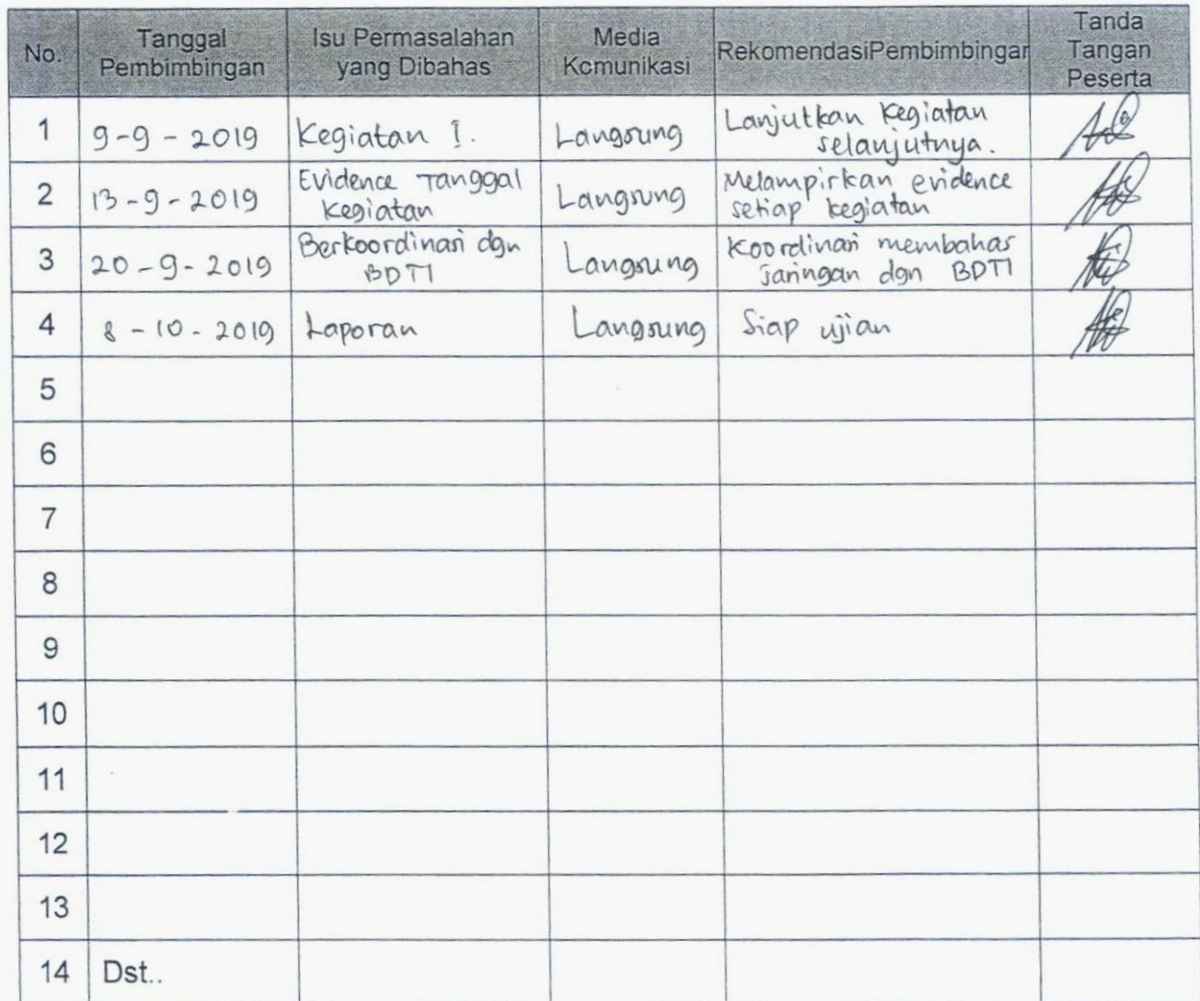 No.
Tanggal
Pembimbingan
Isu Permasalahan
yang Dibahas
Media
Komunikasi
RekomendasiPembimbingan
Tanda
Tangan
Peserta
1
9-9-2019
Kegiatan I.
Langsung
Lanjutkan kegiatan
selanjutnya.
2
13-9-2019
Evidence Tanggal
kegiatan
Langsung
Melampirkan evidence
setiap kegiatan
3
20-9-2019
Berkoordinasi dgn
BDTI
Langsung
Koordinasi membahas
jaringan dgn BDTI
4
8-10-2019
Laporan
Langsung
Siap ujian
5
6
7
8
9
10
11
12
13
14 Dst..